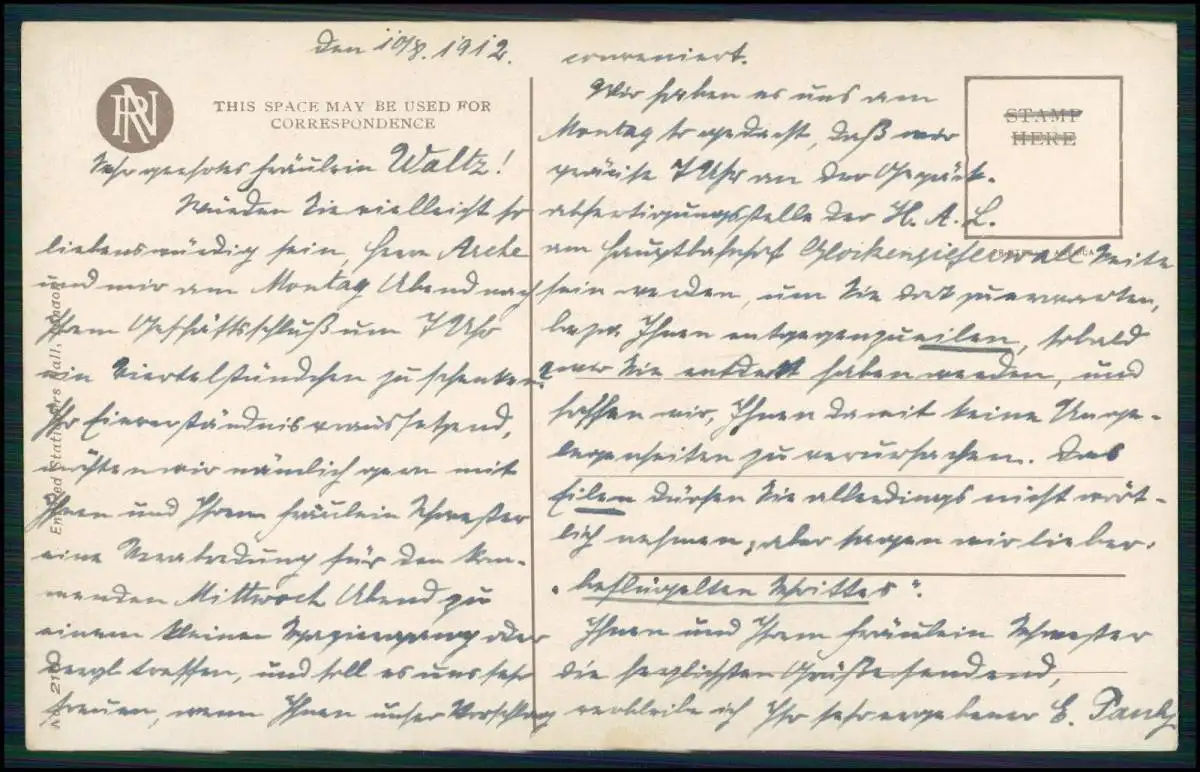 den 10/8. 1912.
RN
THIS SPACE MAY BE USED FOR
CORRESPONDENCE
Sehr geehrtes Fräulein Waltz!
Würden Sie vielleicht so
liebenswürdig sein, Herrn Arche
und mir am Montag Abend nach
Ihrem Geschäftsschluß um 7 Uhr
ein Viertelstündchen zu schenken?
Ihr Einverständnis voraussetzend,
möchten wir nämlich gern mit
Ihnen und Ihrem Fräulein Schwester
eine Verabredung für den kom-
menden Mittwoch Abend zu
einem kleinen Spaziergang oder
dergl. treffen, und soll es uns sehr
freuen, wenn Ihnen unser Vorschlag
conveniert.
Wir haben es uns am
Montag so gedacht, daß wir
präcise 7 Uhr an der Gepäck-
abfertigungsstelle der H. A. L.
am Hauptbahnhof Glockengießerwall Seite
sein werden, um Sie dort zu erwarten,
bezw. Ihnen entgegenzueilen, sobald
wir Sie entdeckt haben werden, und
hoffen wir, Ihnen damit keine Unge-
legenheiten zu verursachen. Das
Eilen dürfen Sie allerdings nicht wört-
lich nehmen, aber sagen wir lieber:
„beflügelten Schrittes".
Ihnen und Ihrem Fräulein Schwester
die herzlichsten Grüße sendend,
verbleibe ich Ihr sehr ergebener E. Pauly
STAMP
HERE
Entered Stationers Hall, London
No 2110